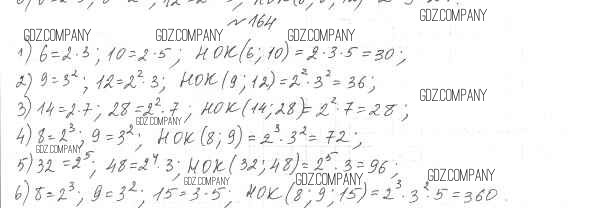 № 164
GDZ.COMPANY
GDZ.COMPANY GDZ.COMPANY GDZ.COMPANY
1) 6=2·3; 10=2·5; НОК(6;10)=2·3·5=30;
2) 9=3²; 12=2²·3; НОК(9;12)=2²·3²=36;
GDZ.COMPANY
3) 14=2·7; 28=2²·7; НОК(14;28)=2²·7=28;
GDZ.COMPANY
4) 8=2³; 9=3²; НОК(8;9)=2³·3²=72;
GDZ.COMPANY
5) 32=2⁵; 48=2⁴·3; НОК(32;48)=2⁵·3=96;
GDZ.COMPANY GDZ.COMPANY GDZ.COMPANY
6) 8=2³; 9=3²; 15=3·5; НОК(8;9;15)=2³·3²·5=360.